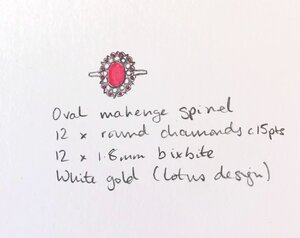 Oval mahenge spinel
12 x round diamonds c.15pts
12 x 1.8mm bixbite
White gold (lotus design)